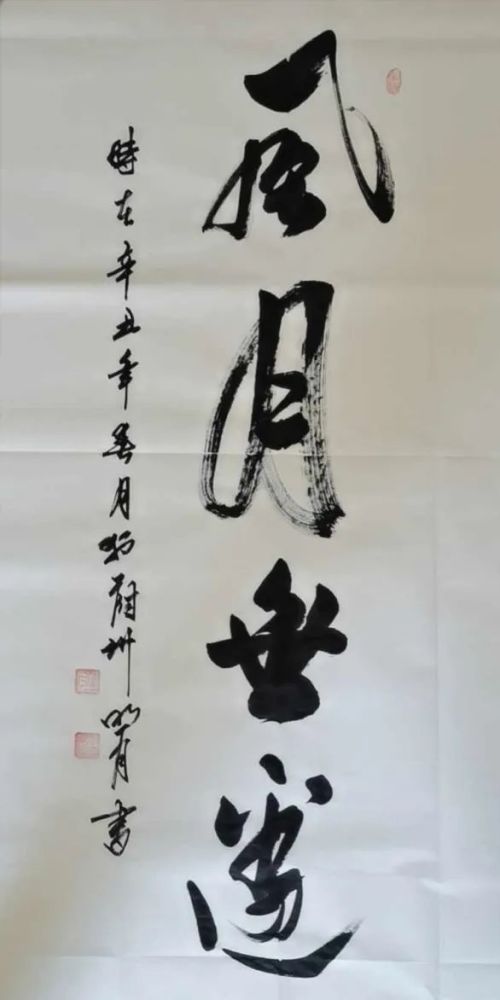 風月無邊
時在辛丑年春月於蔚州書